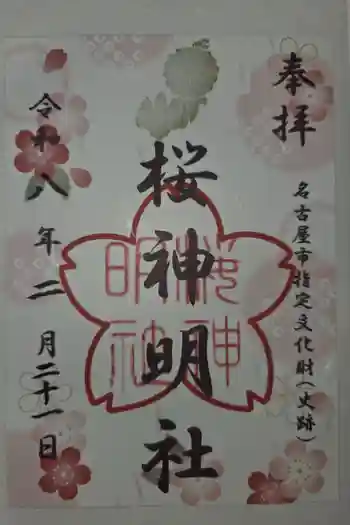 奉拝
名古屋市指定文化財(史跡)
桜神明社
桜神明社
令和八年二月二十一日